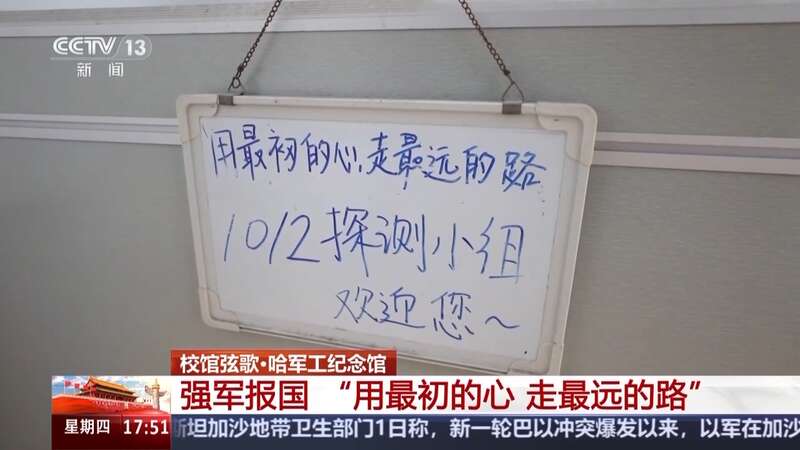 CCTV 13
新闻
用最初的心,走最远的路
1012探测小组
欢迎您~
校馆弦歌·哈军工纪念馆
强军报国 “用最初的心 走最远的路”
星期四 17:51
斯坦加沙地带卫生部门1日称，新一轮巴以冲突爆发以来，以军在加沙